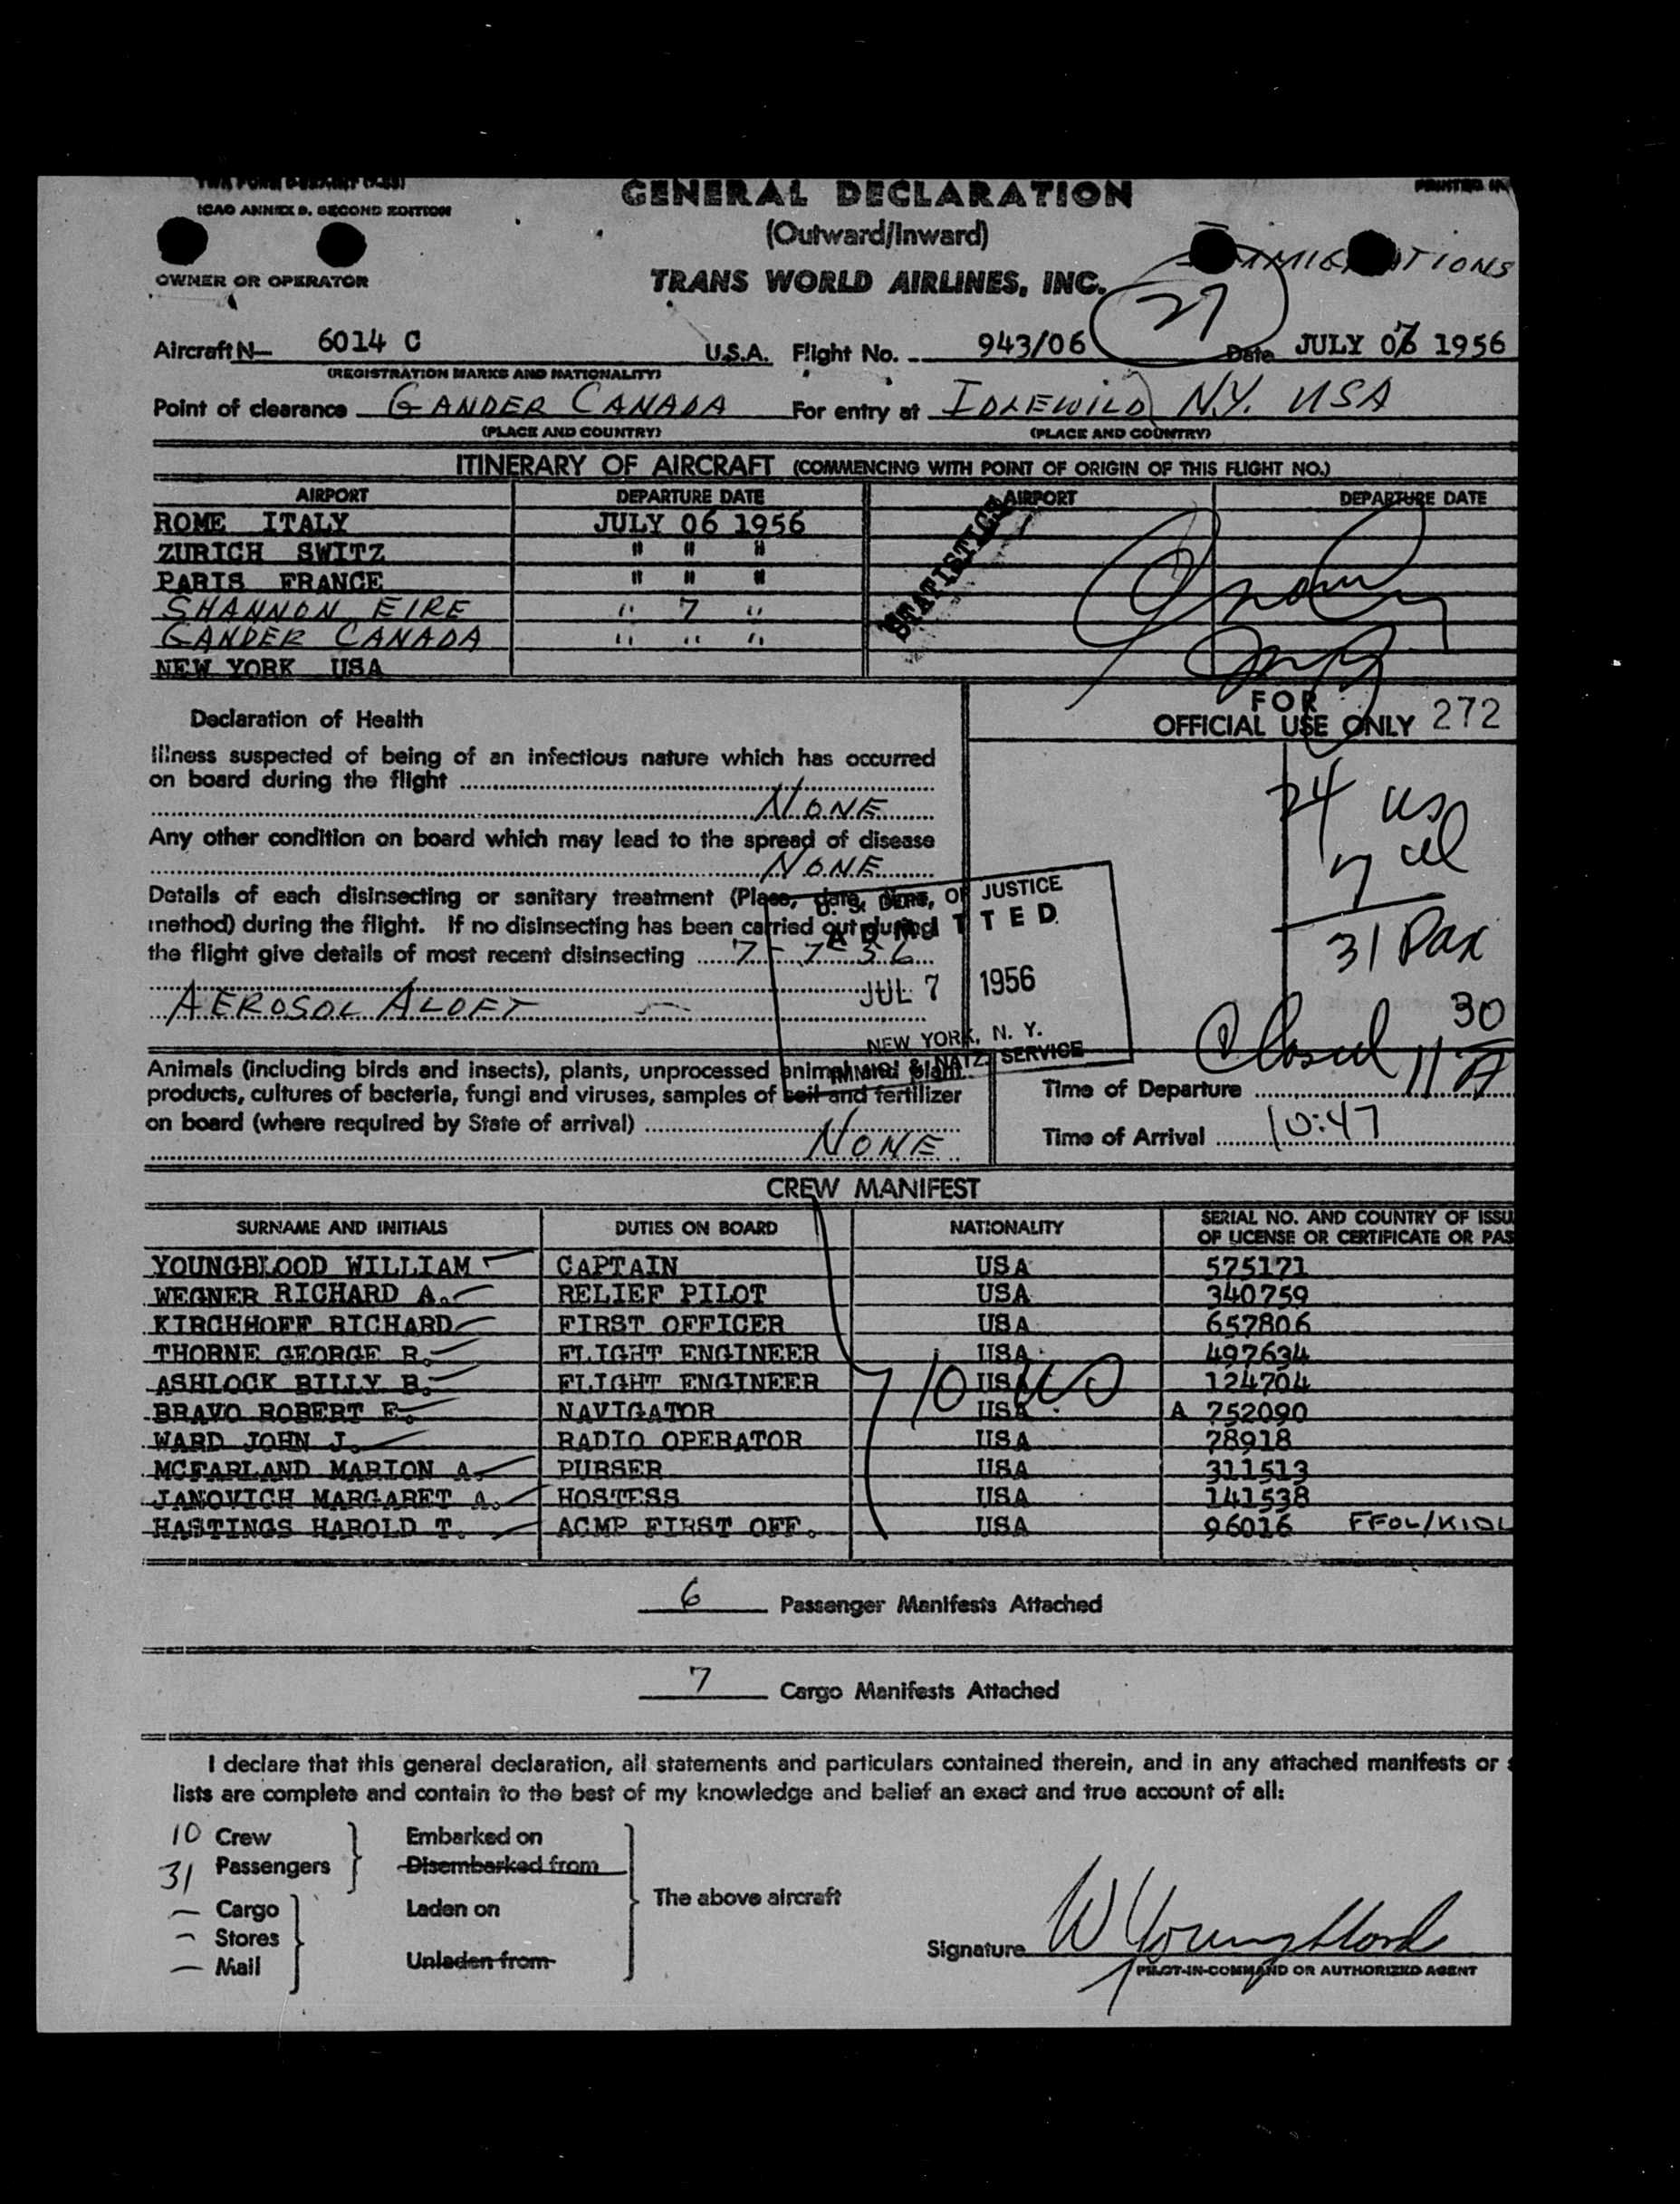 ICAO ANNEX 9, SECOND EDITION
GENERAL DECLARATION
PRINTED IN
(Outward/Inward)
OWNER OR OPERATOR
TRANS WORLD AIRLINES, INC.
27
Aircraft N— 6014 C U.S.A. Flight No. 943/06 Date JULY 07 1956
(REGISTRATION MARKS AND NATIONALITY)
Point of clearance GANDER CANADA For entry at IDLEWILD N.Y. USA
(PLACE AND COUNTRY) (PLACE AND COUNTRY)
ITINERARY OF AIRCRAFT (COMMENCING WITH POINT OF ORIGIN OF THIS FLIGHT NO.)
AIRPORT DEPARTURE DATE AIRPORT DEPARTURE DATE
ROME ITALY JULY 06 1956
ZURICH SWITZ " " "
PARIS FRANCE " " "
SHANNON EIRE " 7 "
GANDER CANADA " " "
NEW YORK USA
STATISTICS
Declaration of Health
FOR
OFFICIAL USE ONLY 272
Illness suspected of being of an infectious nature which has occurred
on board during the flight
NONE
Any other condition on board which may lead to the spread of disease
NONE
24 us
7 al
31 Pax
Details of each disinsecting or sanitary treatment (Place, date, time,
method) during the flight. If no disinsecting has been carried out during
the flight give details of most recent disinsecting 7-7-56
AEROSOL ALOFT
U. S. DEPT. OF JUSTICE
ADMITTED
JUL 7 1956
NEW YORK, N. Y.
IMMIG. & NATZ. SERVICE
Closed 11 30 A
Animals (including birds and insects), plants, unprocessed animal and plant
products, cultures of bacteria, fungi and viruses, samples of soil and fertilizer
on board (where required by State of arrival)
NONE
Time of Departure
Time of Arrival 10:47
CREW MANIFEST
SURNAME AND INITIALS DUTIES ON BOARD NATIONALITY SERIAL NO. AND COUNTRY OF ISSU
OF LICENSE OR CERTIFICATE OR PAS
YOUNGBLOOD WILLIAM CAPTAIN USA 575171
WEGNER RICHARD A. RELIEF PILOT USA 340759
KIRCHHOFF RICHARD FIRST OFFICER USA 657806
THORNE GEORGE R. FLIGHT ENGINEER USA 497634
ASHLOCK BILLY B. FLIGHT ENGINEER USA 124704
BRAVO ROBERT F. NAVIGATOR USA A 752090
WARD JOHN J. RADIO OPERATOR USA 78918
MCFARLAND MARION A. PURSER USA 311513
JANOVICH MARGARET A. HOSTESS USA 141538
HASTINGS HAROLD T. ACMP FIRST OFF. USA 96016 FFOL/KIDL
6 Passenger Manifests Attached
7 Cargo Manifests Attached
I declare that this general declaration, all statements and particulars contained therein, and in any attached manifests or
lists are complete and contain to the best of my knowledge and belief an exact and true account of all:
10 Crew Embarked on
31 Passengers Disembarked from
— Cargo Laden on The above aircraft
— Stores
— Mail Unladen from
Signature W Youngblood
PILOT-IN-COMMAND OR AUTHORIZED AGENT